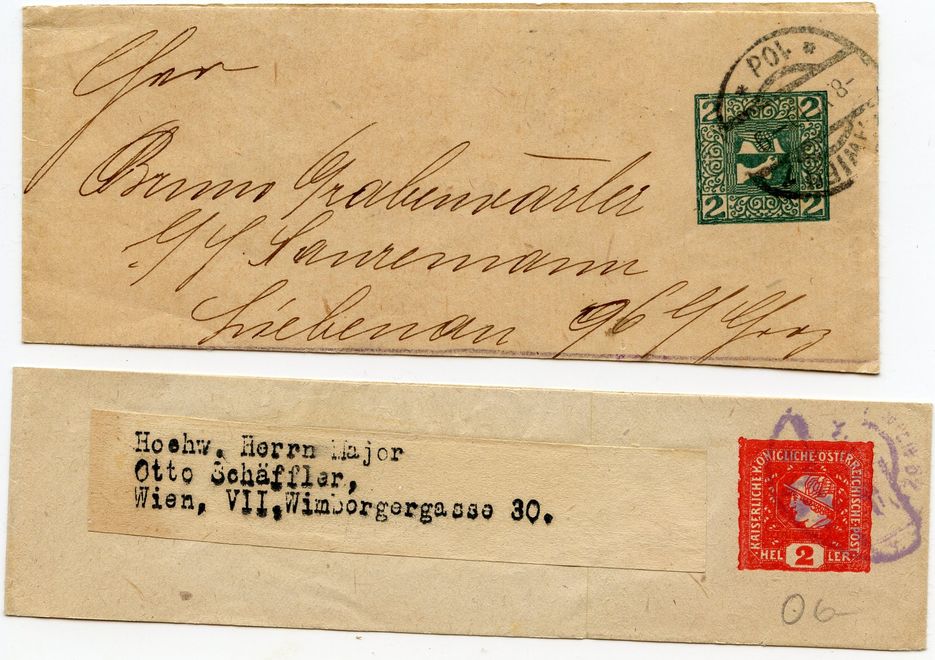 Herr
Bruno Grabenwarter
Liebenau 96
2 2
2 2
Hoehw. Herrn Major
Otto Schäffler,
Wien, VII,Wimborgergasse 30.
KAISERLICHE KÖNIGLICHE ÖSTERREICHISCHE POST
HEL 2 LER
06-